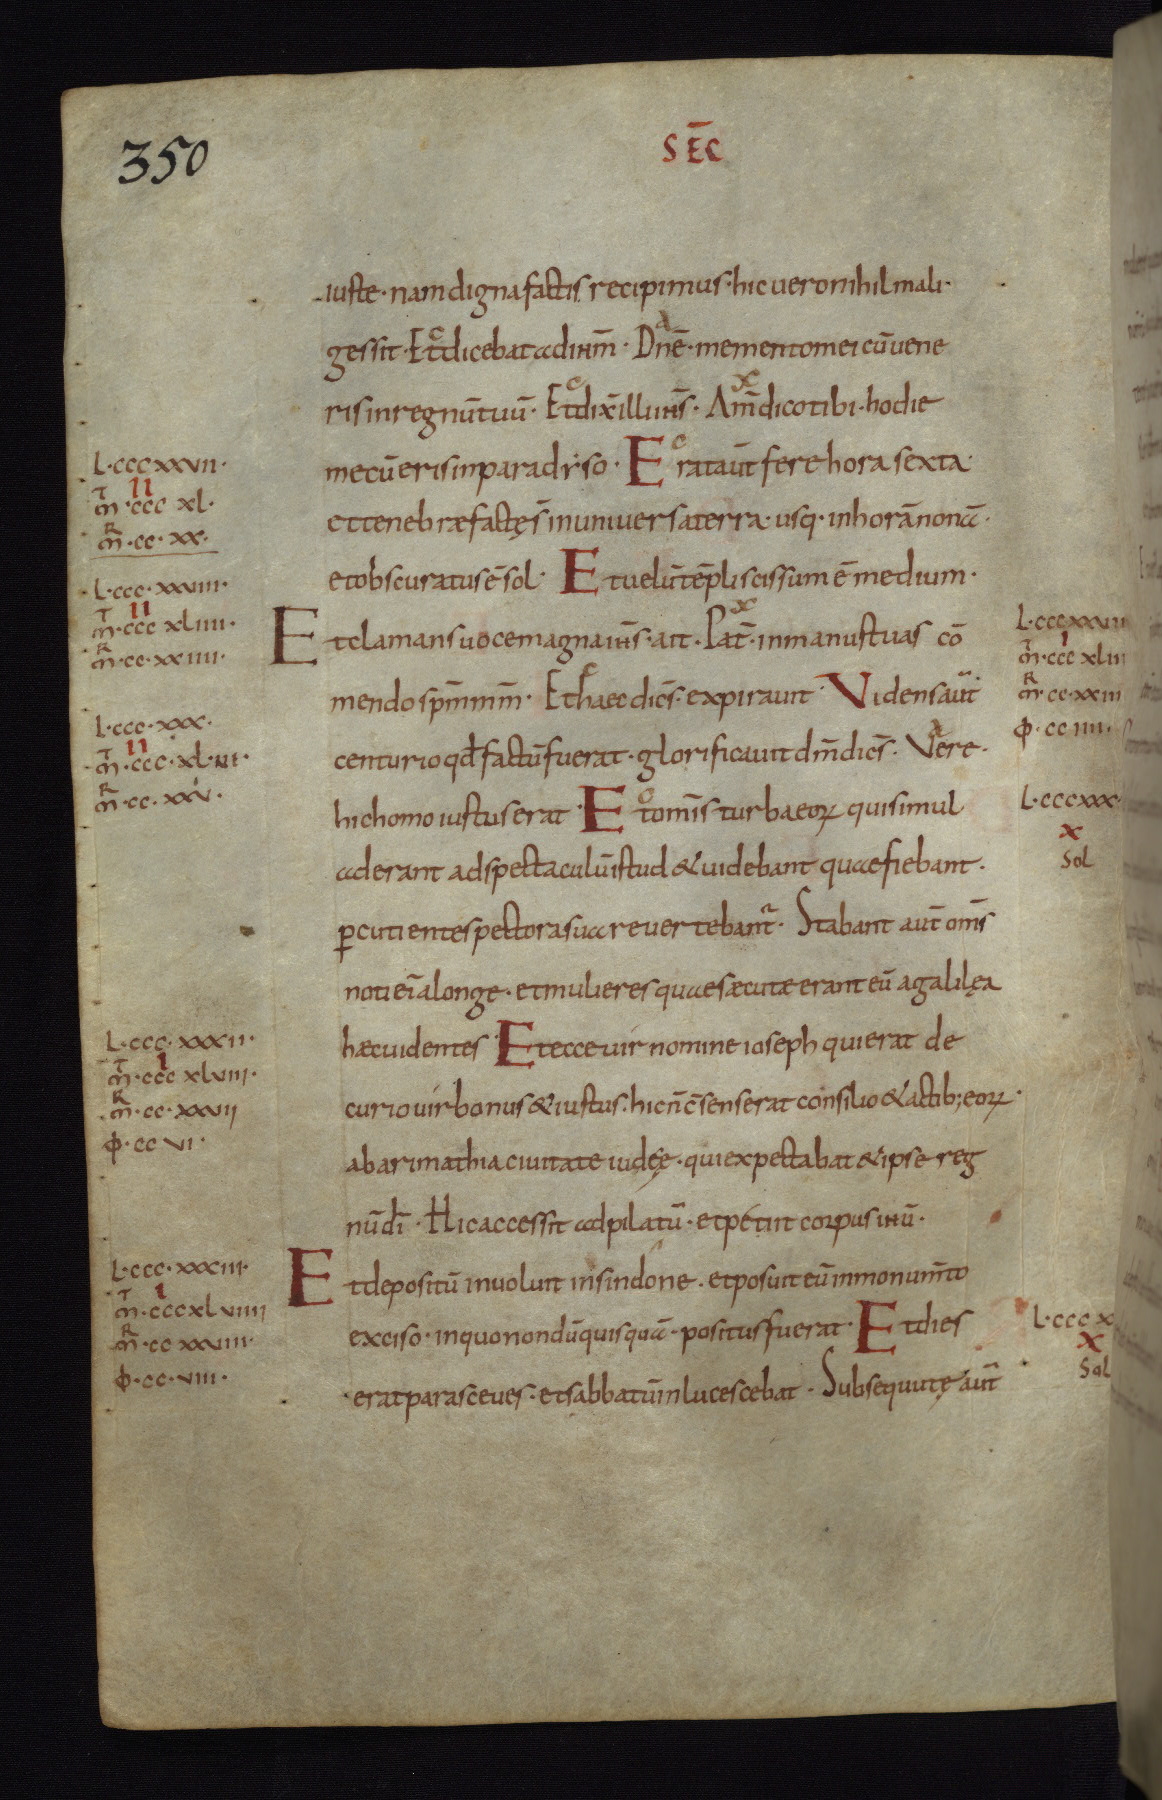 350
SEC̄
iuste · nam digna factis recipimus · hic uero nihil mali ·
gessit · Et dicebat ad ihm̄ · Dnē · memento mei cū uene
ris in regnū tuū · Et dix̄ illi ihs̄ · Am̄ dico tibi · hodie
mecū eris in paradiso · Erat aūt fere hora sexta ·
et tenebrae factę s̄ in uniuersa terra · usq· in horā nonā ·
et obscuratus ē sol · Et uelū tēpli scissum ē medium ·
Et clamans uoce magna ihs̄ · ait · Pat̄ · in manus tuas cō
mendo sp̄m m̄m · Et haec dicēs · expirauit · Videns aūt
centurio qd̄ factū fuerat · glorificauit dm̄ dicēs · Vere ·
hic homo iustus erat · Et om̄is turba eoꝝ qui simul
aderant ad spectaculū istud & uidebant quae fiebant ·
ꝑcutientes pectora sua reuertebant᷑ · Stabant aūt om̄s
noti ei᷑ a longe · et mulieres quae secutae erant eū a galilęa
haec uidentes · Et ecce uir nomine ioseph qui erat de
curio uir bonus & iustus · hic n̄ c̄senserat consilio & actib; eoꝝ ·
ab arimathia ciuitate iudęę · qui expectabat & ipse reg
nū dī · Hic accessit ad pilatū · et petiit corpus ihū ·
Et depositū inuoluit in sindone · et posuit eū in monum̄to
exciso · in quo nondū quisquā · positus fuerat · Et dies
erat parasceues · et sabbatū inlucescebat · Subsequutę aūt
L · ccc xxvii ·
II
m̄ · ccc xl ·
m̄ · cc · xx ·
L · ccc · xxviii ·
II
m̄ · ccc xliiii ·
m̄ · cc · xxiiii ·
L · ccc · xxx ·
II
m̄ · ccc · xl · iii ·
m̄ · cc · xxv ·
L · ccc · xxxii ·
I
m̄ · ccc xlviii ·
m̄ · cc · xxvii
φ · cc vi ·
L · ccc · xxxiii ·
I
m̄ · ccc xlviiii
m̄ · cc xxviii ·
φ · cc · viii ·
I
m̄ · ccc xliii
m̄ · cc · xxiii
φ · cc iiii ·
L · ccc xxx
x
Sol
L · ccc x
x
Sol